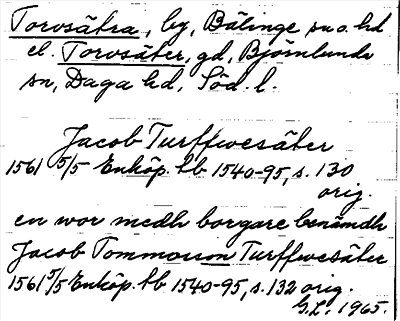 Torvsätra, by, Bälinge sn o. hd
el. Torvsäter, gd, Björnlunda
sn, Daga hd, Söd. l.
Jacob Turffwesäter
1561 5/5 Enköp. tb 1540-95, s. 130
orig.
en wor medh borgare benämdh
Jacob Tommosson Turffwesäter
1561 5/5 Enköp. tb 1540-95, s. 132 orig.
G.L. 1965.